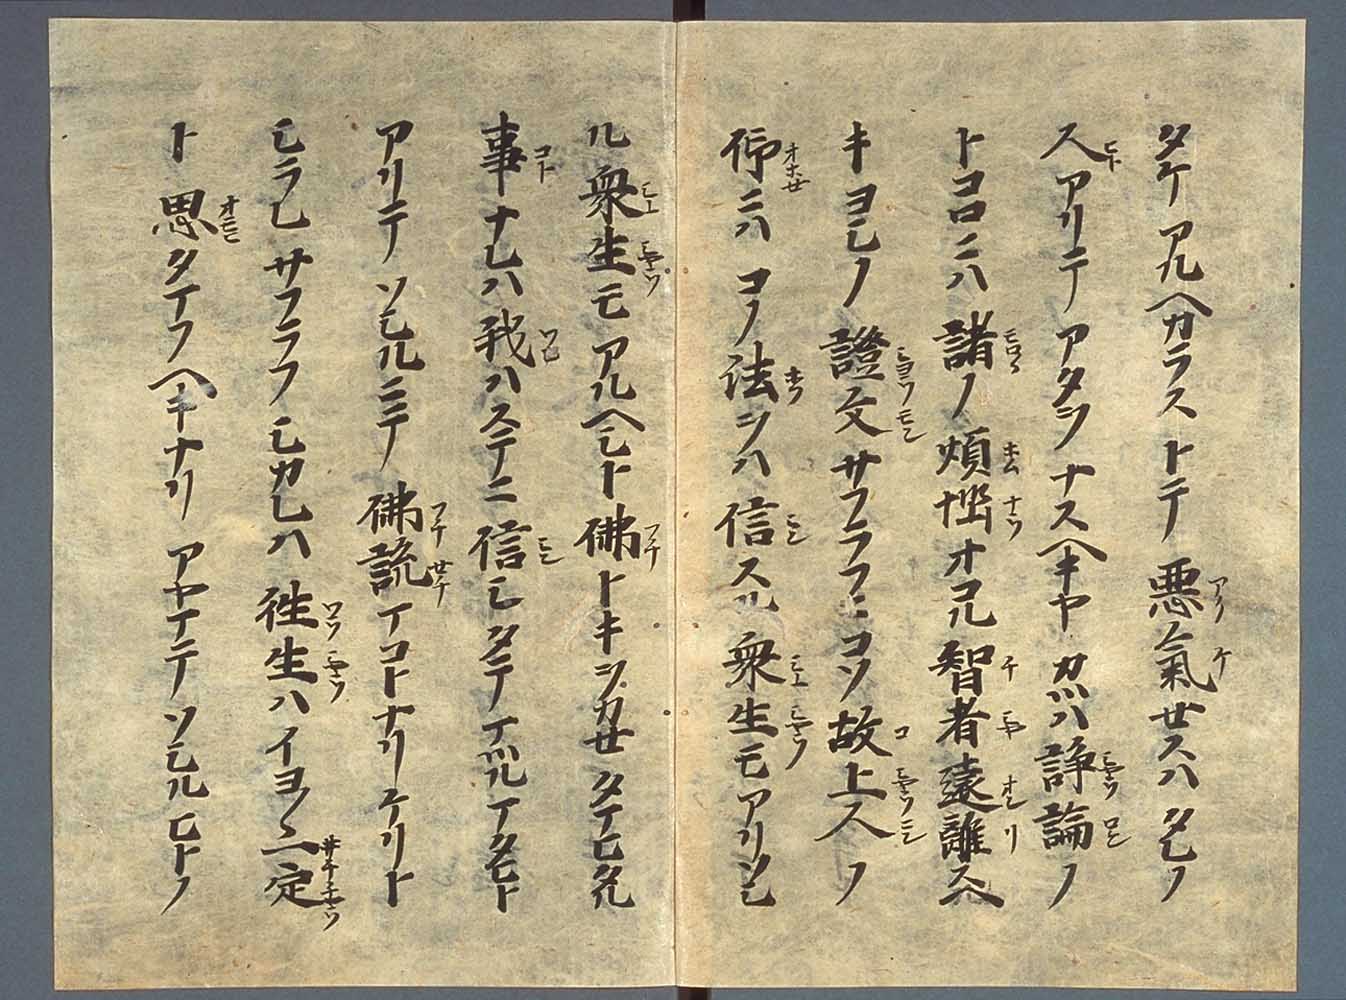 タケアルヘカラストテ惡氣セスハタレノ
人アリテアタヲナスヘキヤカツハ諍論ノ
トコロニハ諸ノ煩惱オコル智者遠離スヘ
キヨシノ證文サフラフニコソ故上人ノ
仰ニハコノ法ヲハ信スル衆生モアリソシ
ル衆生モアルヘシト佛トキヲカセタマヒタル
事ナレハ我ハステニ信シタテマツルマタヒト
アリテソシルニテ佛説マコトナリケリト
シラレサフラフシカレハ往生ハイヨ〱一定
ト思タマフヘキナリアヤマテソシルヒトノ